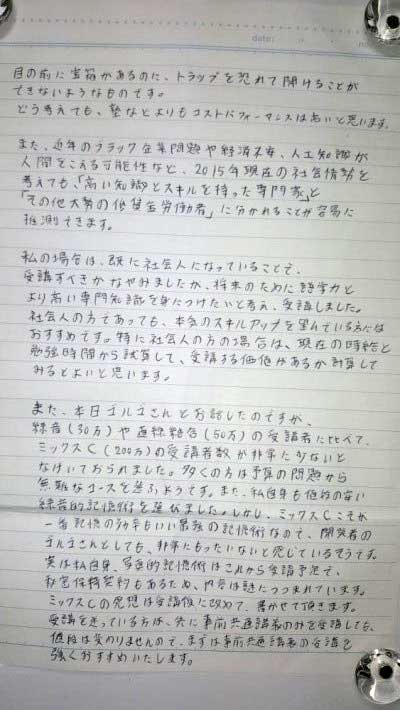 date:
目の前に宝箱があるのに、トラップを恐れて開けることが
できないようなものです。
どう考えても、塾などよりもコストパフォーマンスは高いと思います。
また、近年のブラック企業問題や経済不安、人工知識が
人間をこえる可能性など、2015年現在の社会情勢を
考えても、「高い知識とスキルを持った専門家」と
「その他大勢の低賃金労働者」に分かれることが容易に
推測できます。
私の場合は、既に社会人になっていることで、
受講すべきかなやみましたが、将来のために語学力と
より高い専門知識を身につけたいと考え、受講しました。
社会人の方であっても、本気のスキルアップを望んでいる方には
おすすめです。特に社会人の方の場合は、現在の時給と
勉強時間から試算して、受講する価値があるか計算して
みるとよいと思います。
また、本日ゴルゴさんとお話したのですが、
録音(30万)や直録結合(50万)の受講者に比べて、
ミックスC(200万)の受講者数が非常に少ないと
なげいておられました。多くの方は予算の問題から
無難なコースを選ぶようです。また、私自身も値段の安い
録音的記憶術を選びました。しかし、ミックスCこそが
一番記憶の効率もいい最強の記憶術なので、開発者の
ゴルゴさんとしても、非常にもったいないと感じているそうです。
実は私自身、写色的記憶術はこれから受講予定で、
秘密保持契約もあるため、内容は謎につつまれています。
ミックスCの感想は受講後に改めて、書かせて頂きます。
受講を迷っている方は、先に事前共通講義のみを受講しても、
値段は変わりませんので、まずは事前共通講義の受講を
強くおすすめいたします。